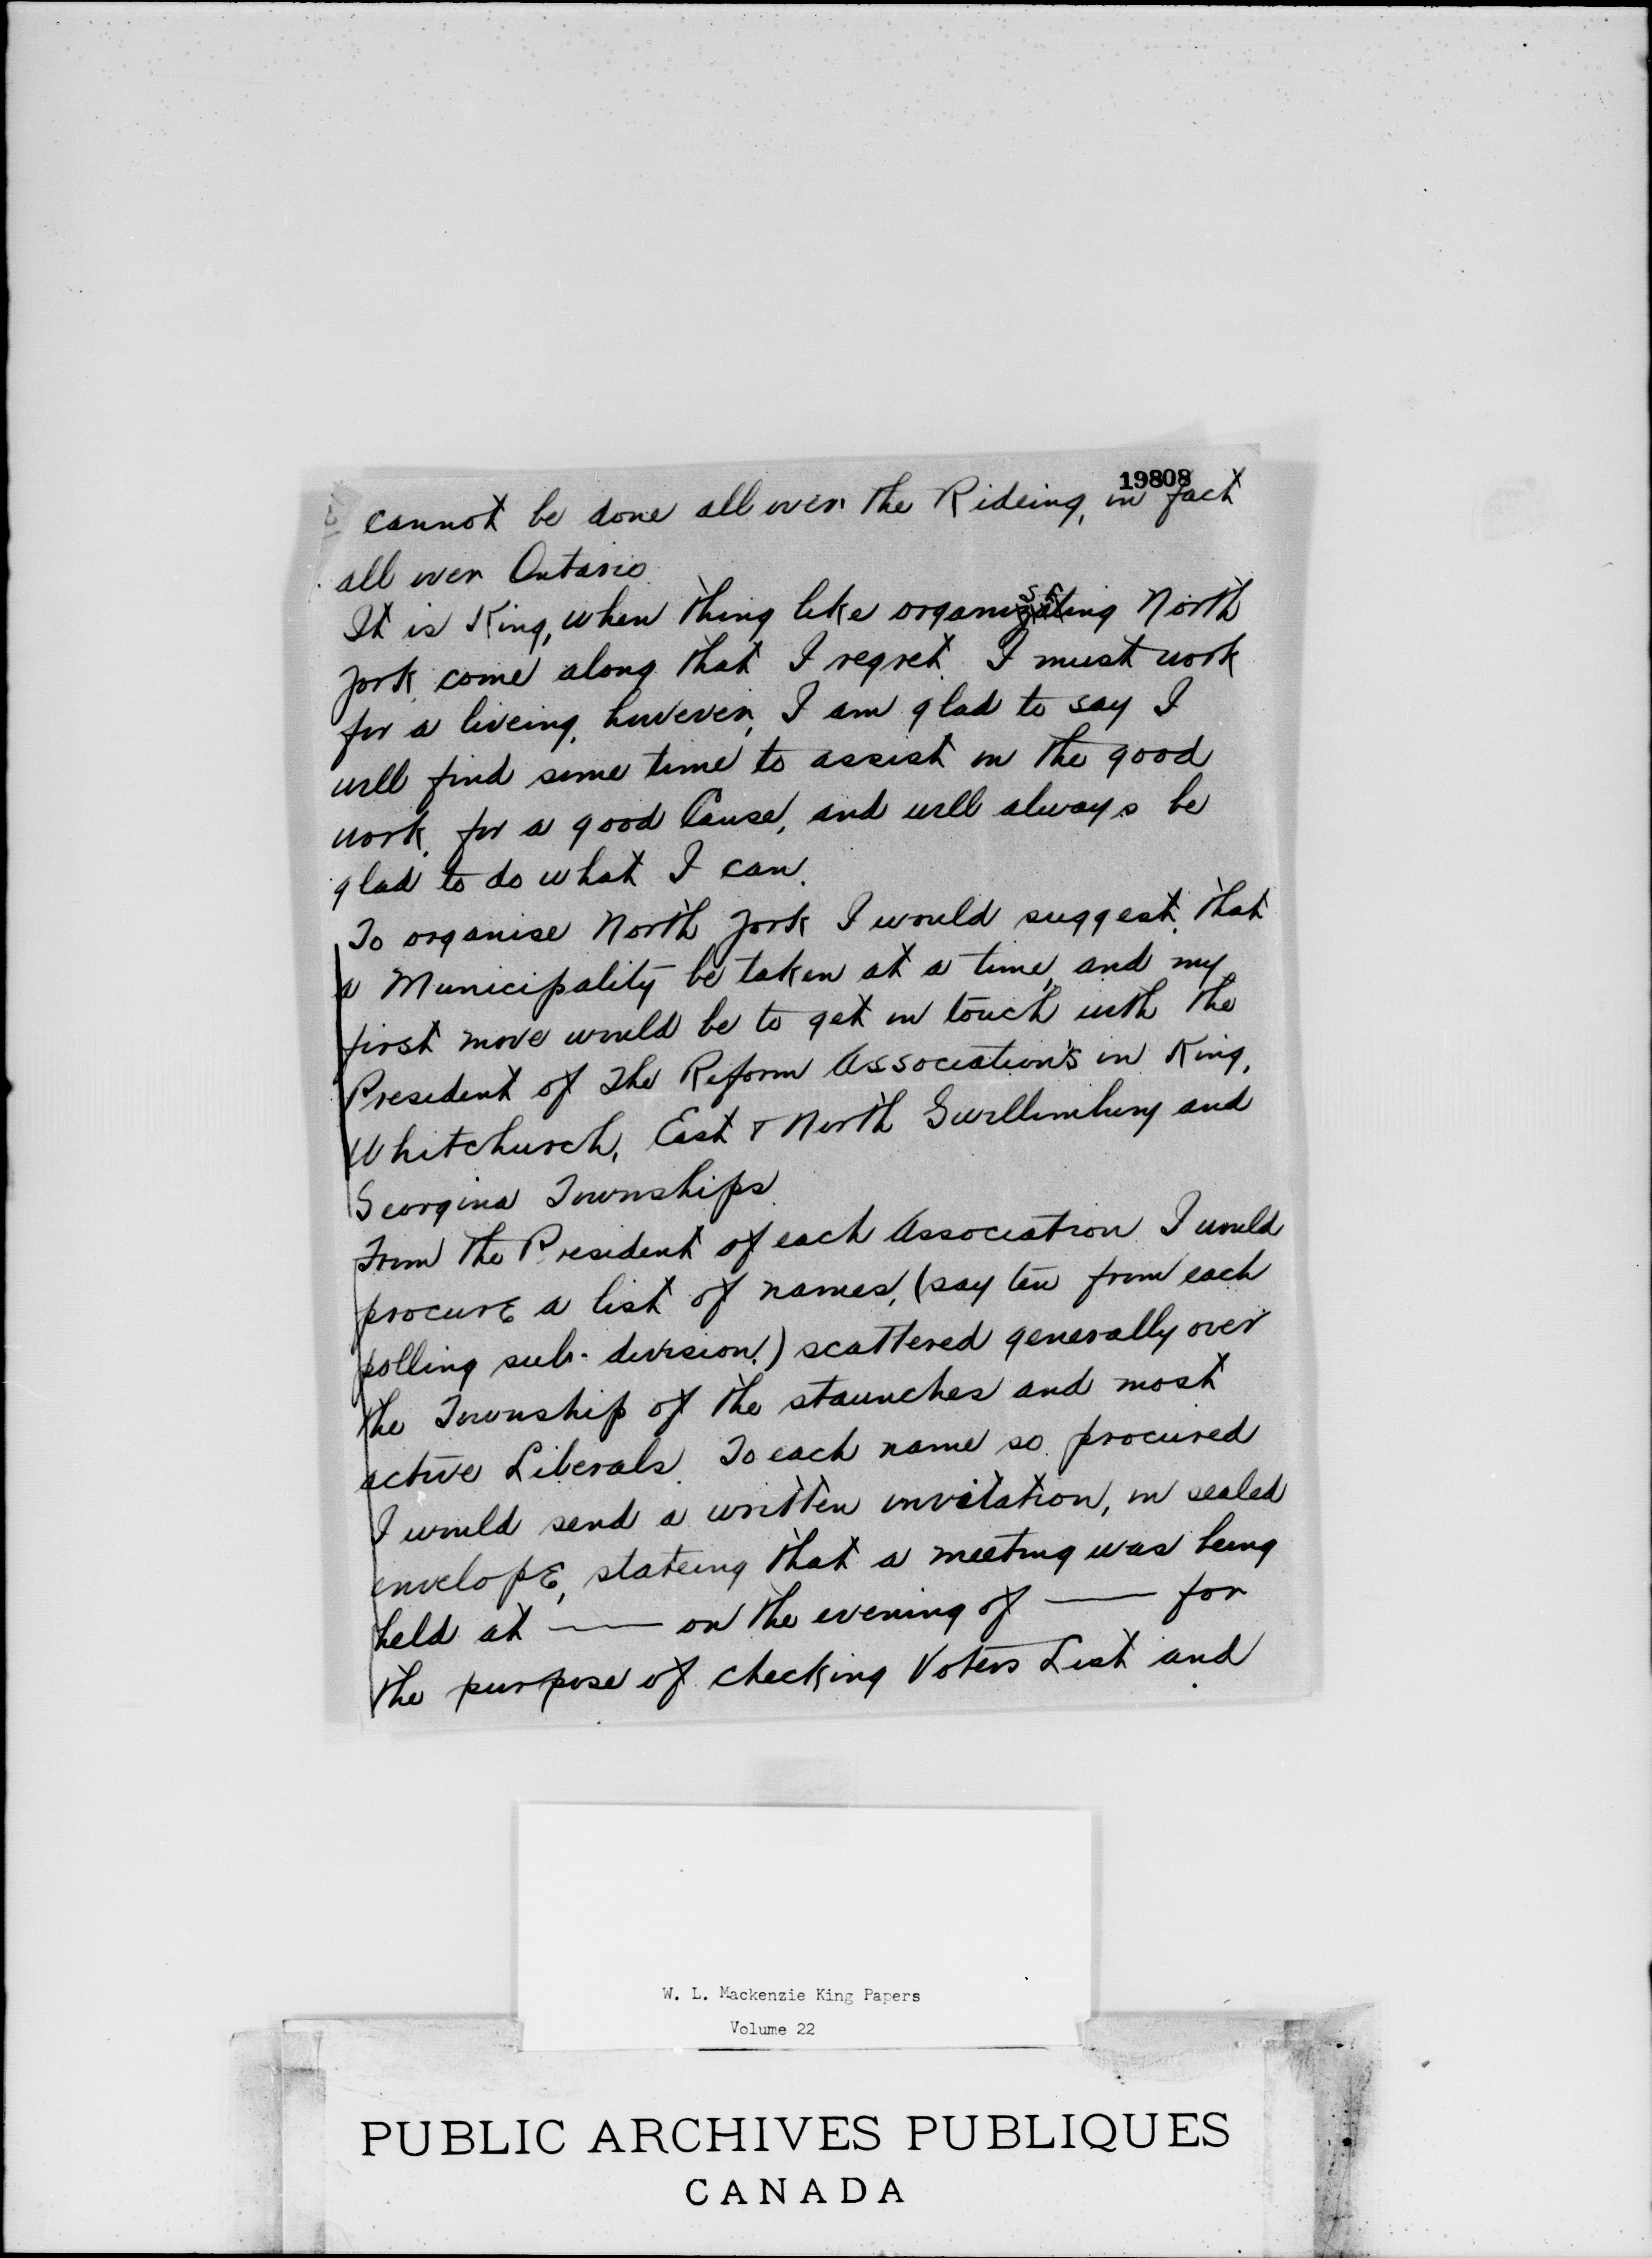 19808
cannot be done all over the Rideing, in fact
all over Ontario
It is King, when thing like organiseing North
York come along that I regret I must work
for a liveing, however, I am glad to say I
will find some time to assist in the good
work, for a good Cause, and will always be
glad to do what I can.
To organise North York I would suggest, that
a Municipality be taken at a time, and my
first move would be to get in touch with the
President of The Reform Association's in King,
Whitchurch, East & North Gwillimbury and
Georgina Townships
From the President of each Association I would
procure a list of names, (say ten from each
polling sub-division.) scattered generally over
the Township of the staunches and most
active Liberals. To each name so procured
I would send a written invitation, in sealed
envelope, stateing that a meeting was being
held at —— on the evening of —— for
the purpose of checking Voters List and
W. L. Mackenzie King Papers
Volume 22
PUBLIC ARCHIVES PUBLIQUES
CANADA